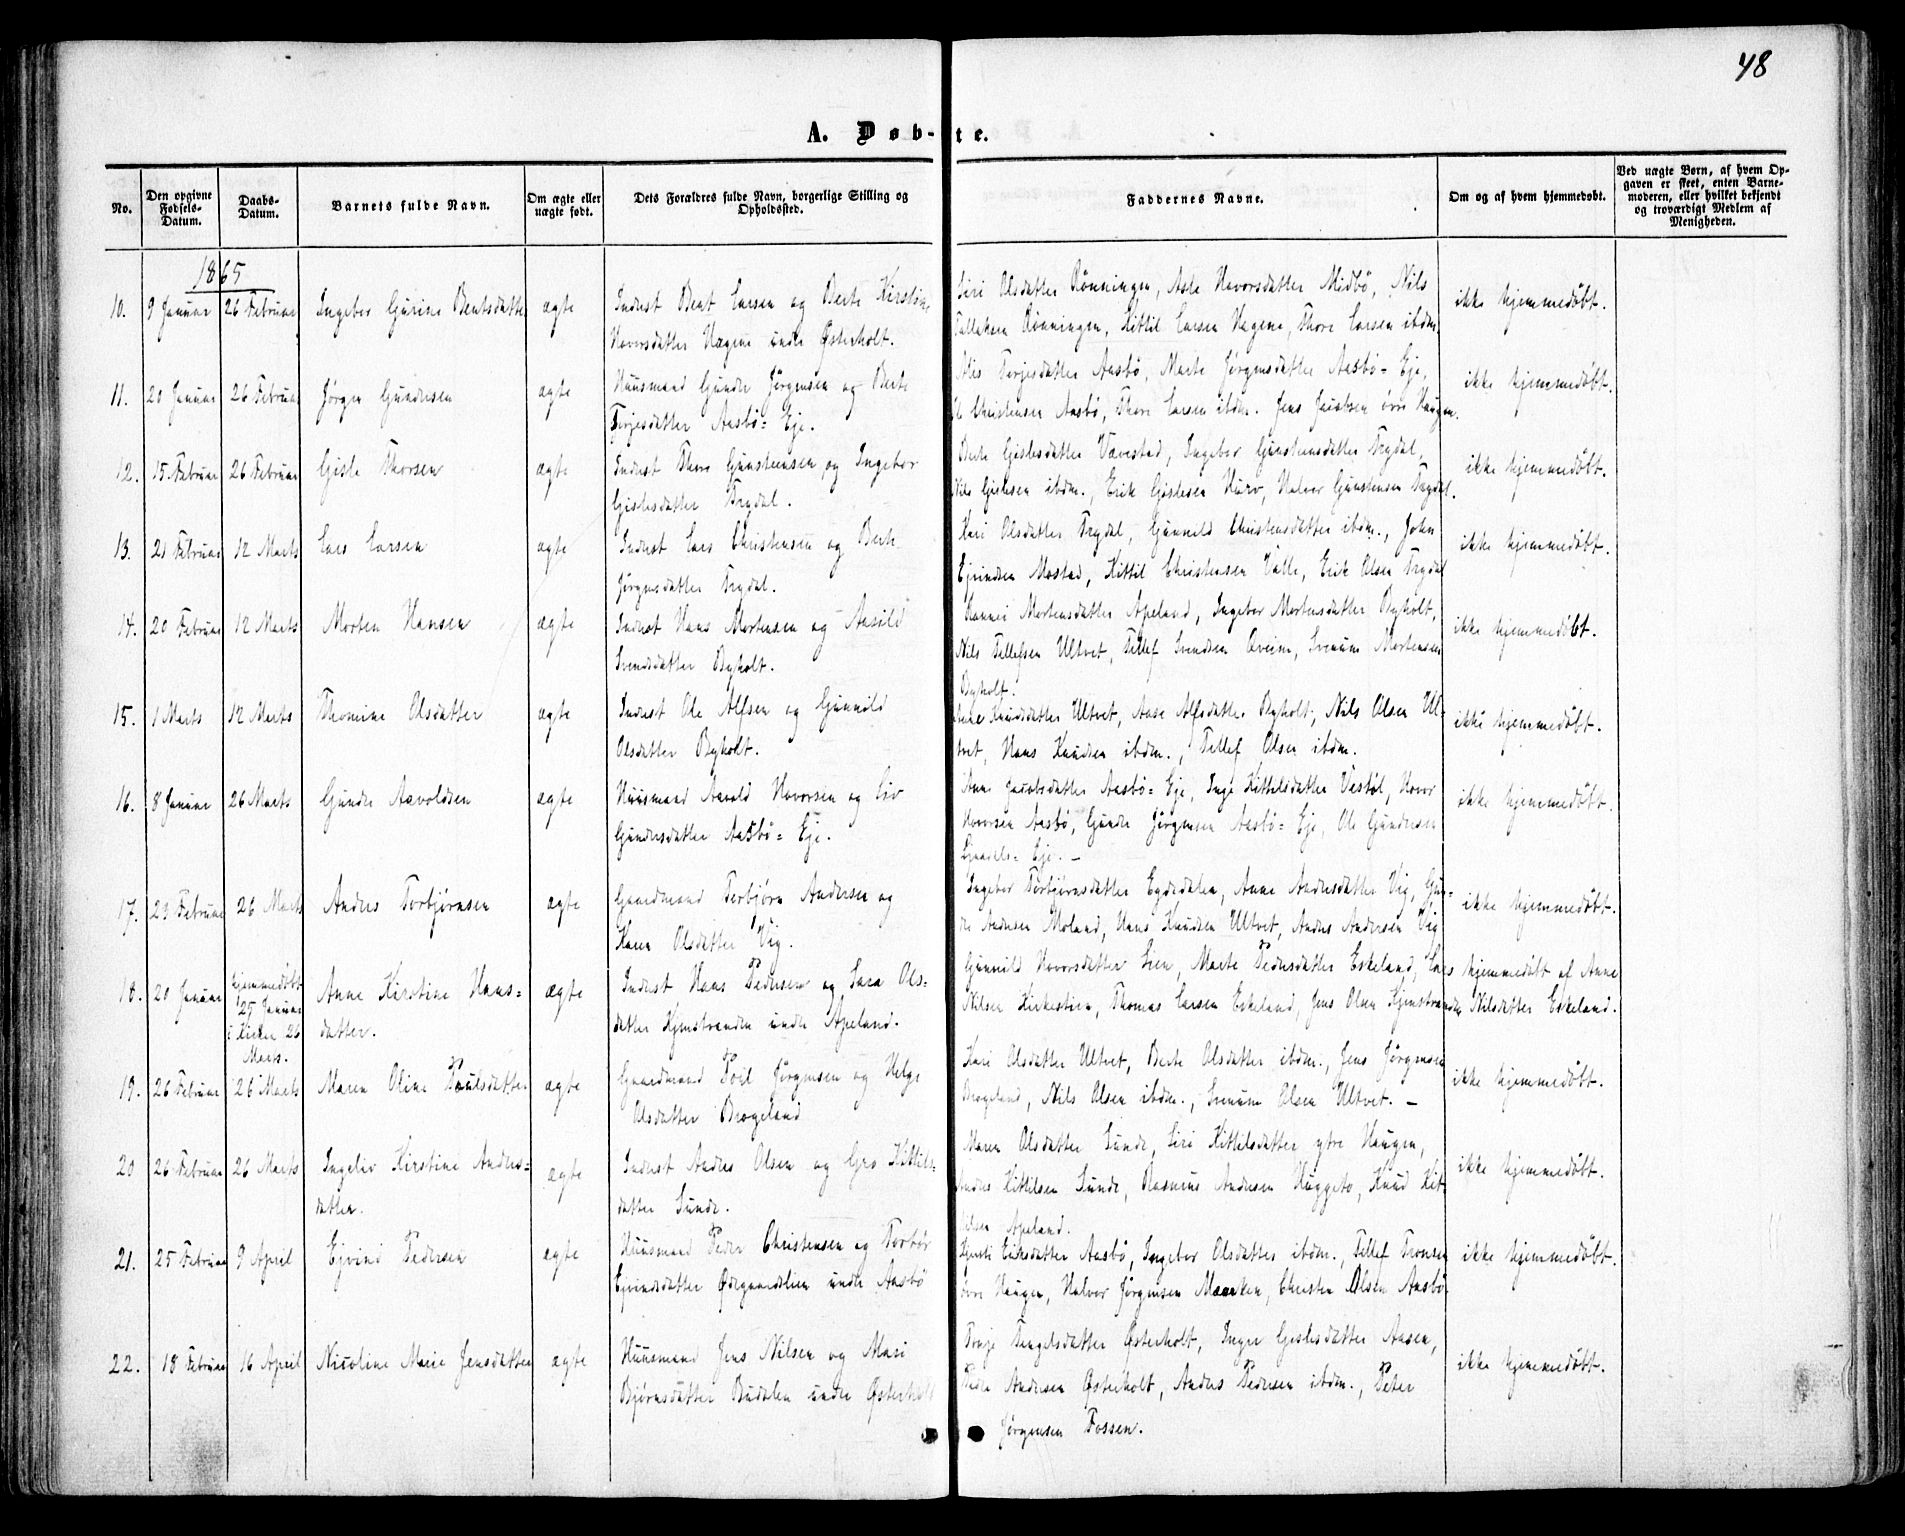 48
A. Døb-te.
No.
Den opgivne Fødsels-Datum.
Daabs-Datum.
Barnets fulde Navn.
Om ægte eller uægte født.
Dets Forældres fulde Navn, borgerlige Stilling og Opholdssted.
Faddernes Navne.
Om og af hvem hjemmedøbt.
Ved uægte Børn, af hvem Opgaven er skeet, enten Barnemoderen, eller hvilket bekjendt og troværdigt Medlem af Menigheden.
1865
10. 9 Januar 26 Februar Ingebor Gurine Bentsdatter ægte
Inderst Bent Larsen og Berte Kirstine
Hovorsdatter Hagene under Østerholt.
Siri Olsdatter Rönningen, Aste Hovorsdatter Midbö, Nils
Tellaksen Rönningen, Kittil Larsen Hagene, Thore Larsen ibdm.
ikke hjemmedöbt.
11. 20 Januar 26 Februar Jörgen Gundersen ægte
Huusmand Gunder Jörgensen og Berte
Terjesdatter Aasbö-Eje.
Alis Terjesdatter Aasbö, Marte Jörgensdatter Aasbö-Eje,
Ole Christensen Aasbö, Thore Larsen ibdm. Jens Jacobsen övre Haugen.
ikke hjemmedöbt.
12. 15 Februar 26 Februar Gisle Thorsen ægte
Inderst Thore Gunstensen og Ingebor
Gislesdatter Trydal.
Berte Gislesdatter Vævestad, Ingebor Gunstensdatter Trydal,
Nils Gislesen ibdm., Erik Gislesen Hurv, Halvor Gunstensen Trydal.
ikke hjemmedöbt.
13. 21 Februar 12 Marts Lars Larsen ægte
Inderst Lars Christensen og Berte
Jörgensdatter Trydal.
Kari Olsdatter Trydal, Gunnild Christensdatter ibdm., John
Ejvindsen Mostad, Kittil Christensen Valle, Erik Olsen Trydal
ikke hjemmedöbt.
14. 20 Februar 12 Marts Morten Hansen ægte
Inderst Hans Mortensen og Aasild
Svendsdatter Byholt.
Mortensdatter Apeland, Ingebor Mortensdatter Byholt,
Nils Tellefsen Ultvet, Tellef Svendsen Kveim, Svenum Mortensen
Byholt.
ikke hjemmedöbt.
15. 1 Marts 12 Marts Thomine Olsdatter ægte
Inderst Ole Alfsen og Gunnild
Olsdatter Byholt.
Anne Knudsdatter Ultvet, Aase Alfsdatter Byholt, Nils Olsen Ul-
tvet, Hans Knudsen ibdm., Tellef Olsen ibdm.
ikke hjemmedöbt.
16. 8 Januar 26 Marts Gunder Aavoldsen ægte
Huusmand Aavold Hovorsen og Liv
Gundersdatter Aasbö-Eje.
Ane Jacobsdatter Aasbö-Eje, Inge Kittilsdatter Vestöl, Hovor
Hovorsen Aasbö, Gunder Jörgensen Aasbö-Eje, Ole Gundersen
Eje. –
ikke hjemmedöbt.
17. 23 Februar 26 Marts Anders Torbjörnsen ægte
Gaardmand Torbjörn Andersen og
Karen Olsdatter Vig.
Ingebor Torbjörnsdatter Egdedalen, Anne Andersdatter Vig, Gun-
der Andersen Moland, Hans Knudsen Ultvet, Anders Andersen Vig
ikke hjemmedöbt.
18. 20 Januar hjemmedöbt 25 Januar i Kirken 26 Marts. Anne Kirstine Hans-
datter. ægte
Inderst Hans Pedersen og Sara Ols-
datter Kjenstranden under Apeland.
Gunnild Hovorsdatter Lien, Marte Pedersdatter Eskeland, Lars
Nilsen Kirkestien, Thomas Larsen Eskeland, Jens Olsen Kjenstranden
hjemmedöbt af Anne
Nilsdatter Eskeland.
19. 26 Februar 26 Marts Maren Oline Paulsdatter ægte
Gaardmand Poil Jörgensen og Helge
Olsdatter Brogeland
Kari Olsdatter Ultvet, Berte Olsdatter ibdm., Jens Jörgensen
Brogeland, Nils Olsen ibdm., Svenum Olsen Ultvet. –
ikke hjemmedöbt.
20 26 Februar 26 Marts Ingeliv Kirstine Anders-
datter. ægte
Inderst Anders Olsen og Gro Kittils-
datter Sunde.
Maren Olsdatter Sunde, Siri Kittilsdatter ytre Haugen,
Anders Kittilsen Sunde, Rasmus Andersen Huggeto, Knud Kit-
tilsen Apeland.
ikke hjemmedöbt.
21. 25 Februar 9 April Ejvind Pedersen ægte
Huusmand Peder Christensen og Torbör
Ejvindsdatter under Aasbö
Kjersti Eriksdatter Aasbö, Ingebor Olsdatter ibdm., Tellef Tronsen
övre Haugen, Halvor Jörgensen Maurken, Christen Olsen Aasbö
ikke hjemmedöbt.
22. 18 Februar 16 April Nicoline Marie Jensdatter ægte
Huusmand Jens Nilsen og Mari
Bjørnsdatter Budalen under Østerholt
Tengelsdatter Østerholt, Inger Gislesdatter Aasen,
Peder Andersen Østerholt, Anders Pedersen ibdm., Peter
Jörgensen Fossen.
ikke hjemmedöbt.